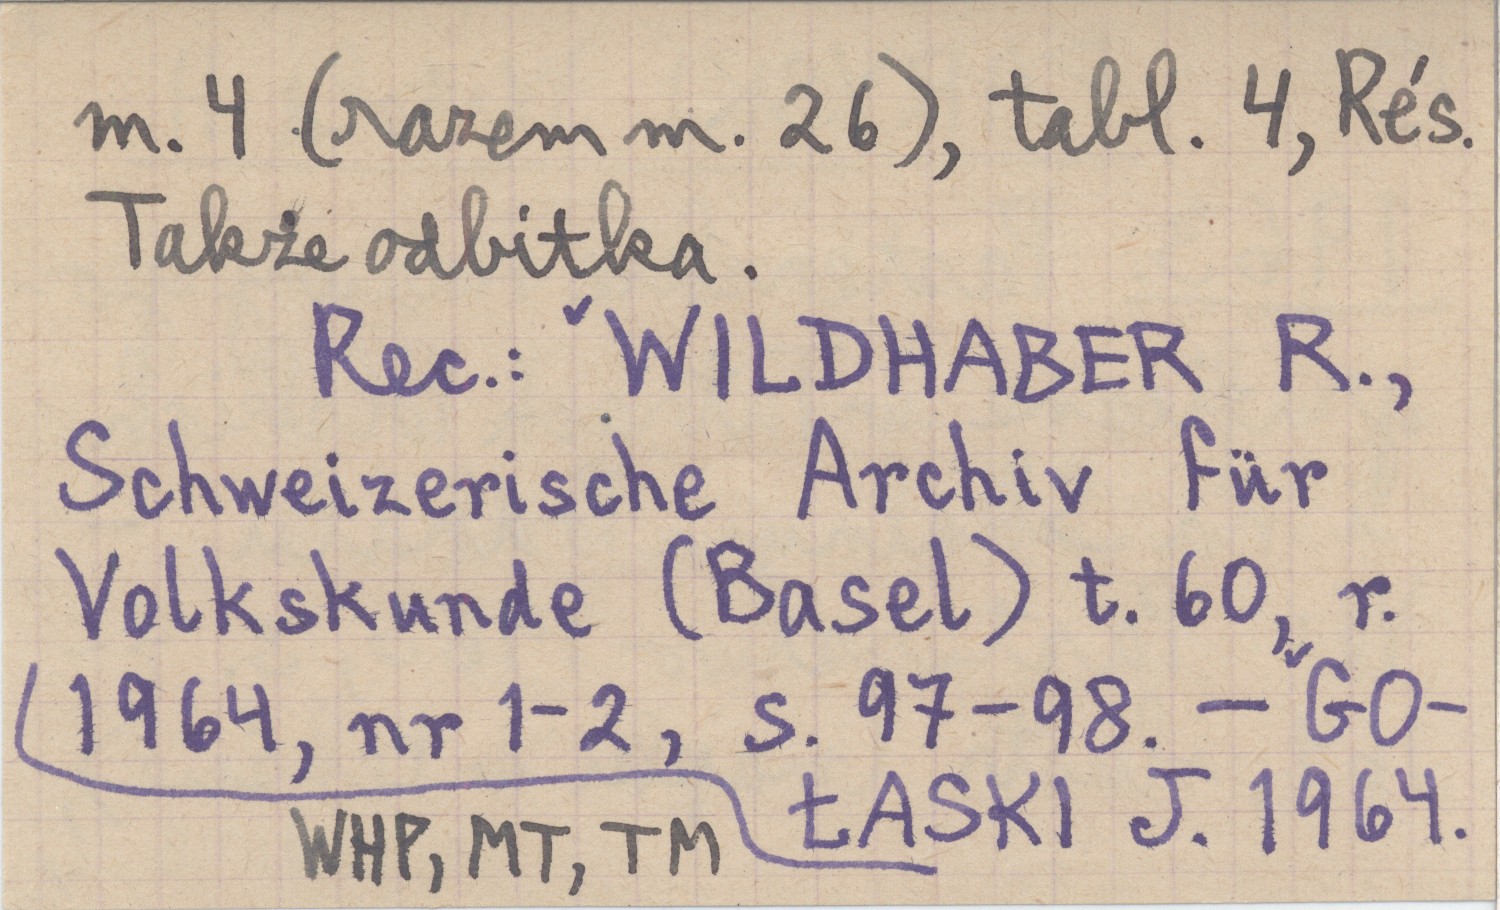 m. 4 (razem m. 26), tabl. 4, Rés.
Także odbitka.
Rec.: WILDHABER R.,
Schweizerische Archiv für
Volkskunde (Basel) t. 60, r.
1964, nr 1-2, s. 97-98. - GO-
ŁASKI J. 1964.
WHP, MT, TM